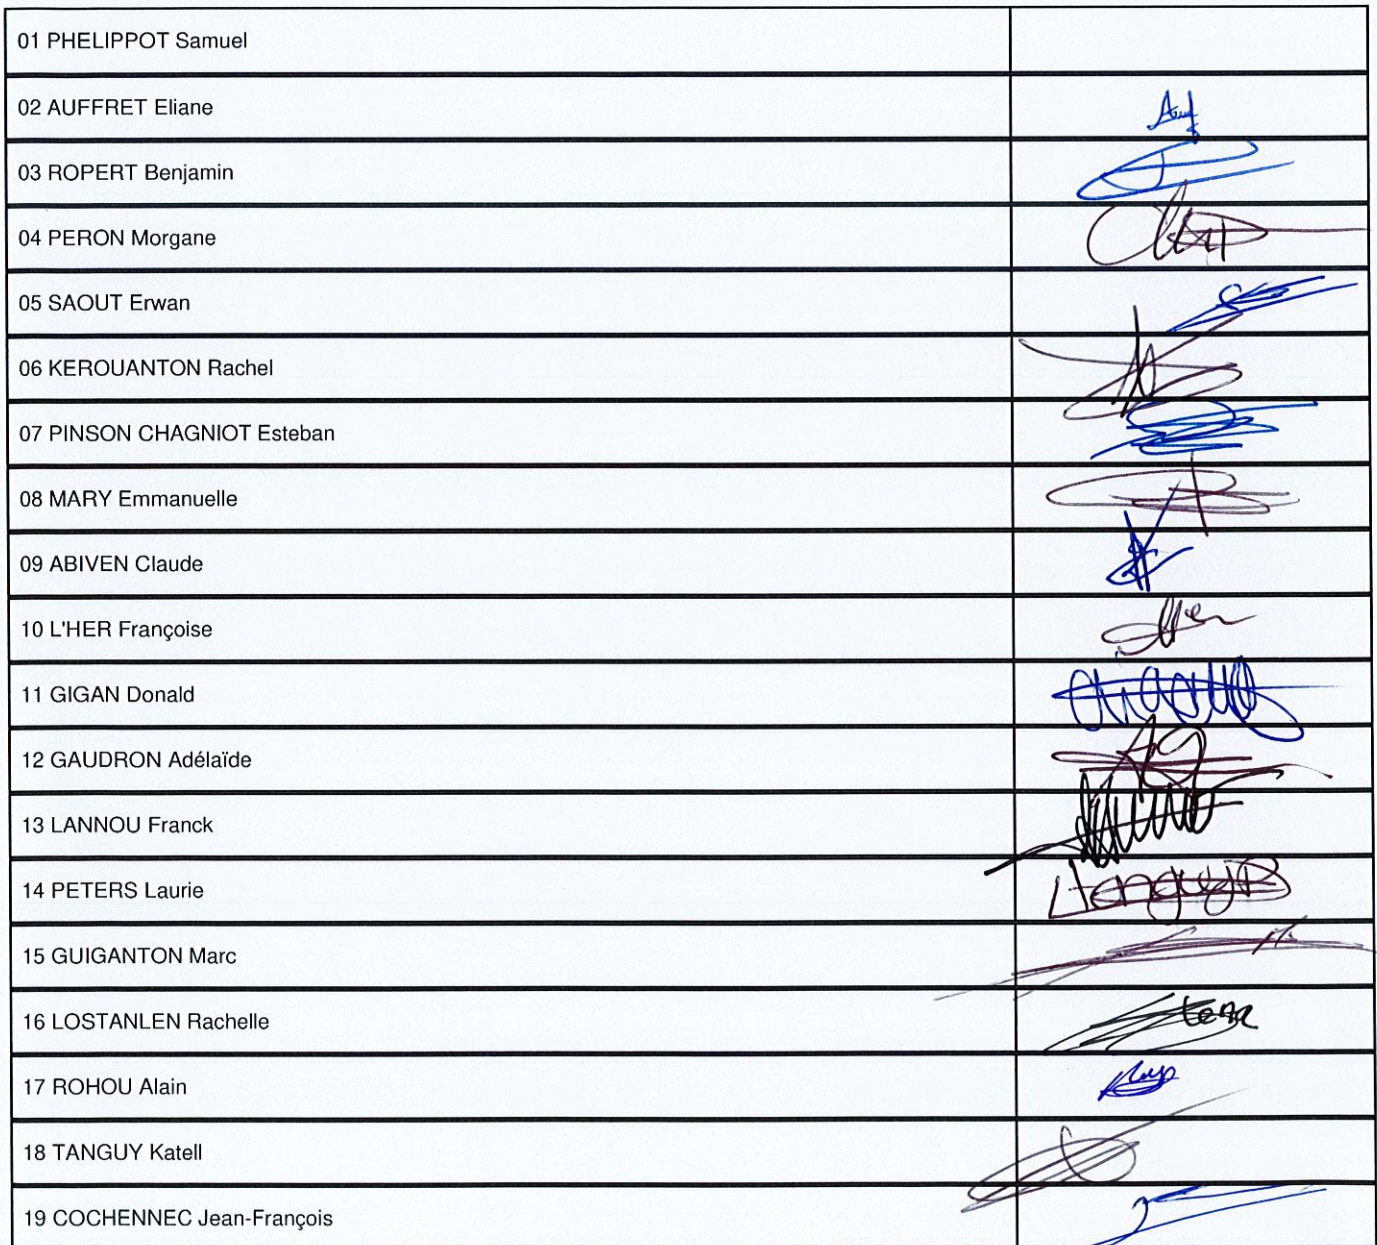 01 PHELIPPOT Samuel
02 AUFFRET Eliane
03 ROPERT Benjamin
04 PERON Morgane
05 SAOUT Erwan
06 KEROUANTON Rachel
07 PINSON CHAGNIOT Esteban
08 MARY Emmanuelle
09 ABIVEN Claude
10 L'HER Françoise
11 GIGAN Donald
12 GAUDRON Adélaïde
13 LANNOU Franck
14 PETERS Laurie
15 GUIGANTON Marc
16 LOSTANLEN Rachelle
17 ROHOU Alain
18 TANGUY Katell
19 COCHENNEC Jean-François